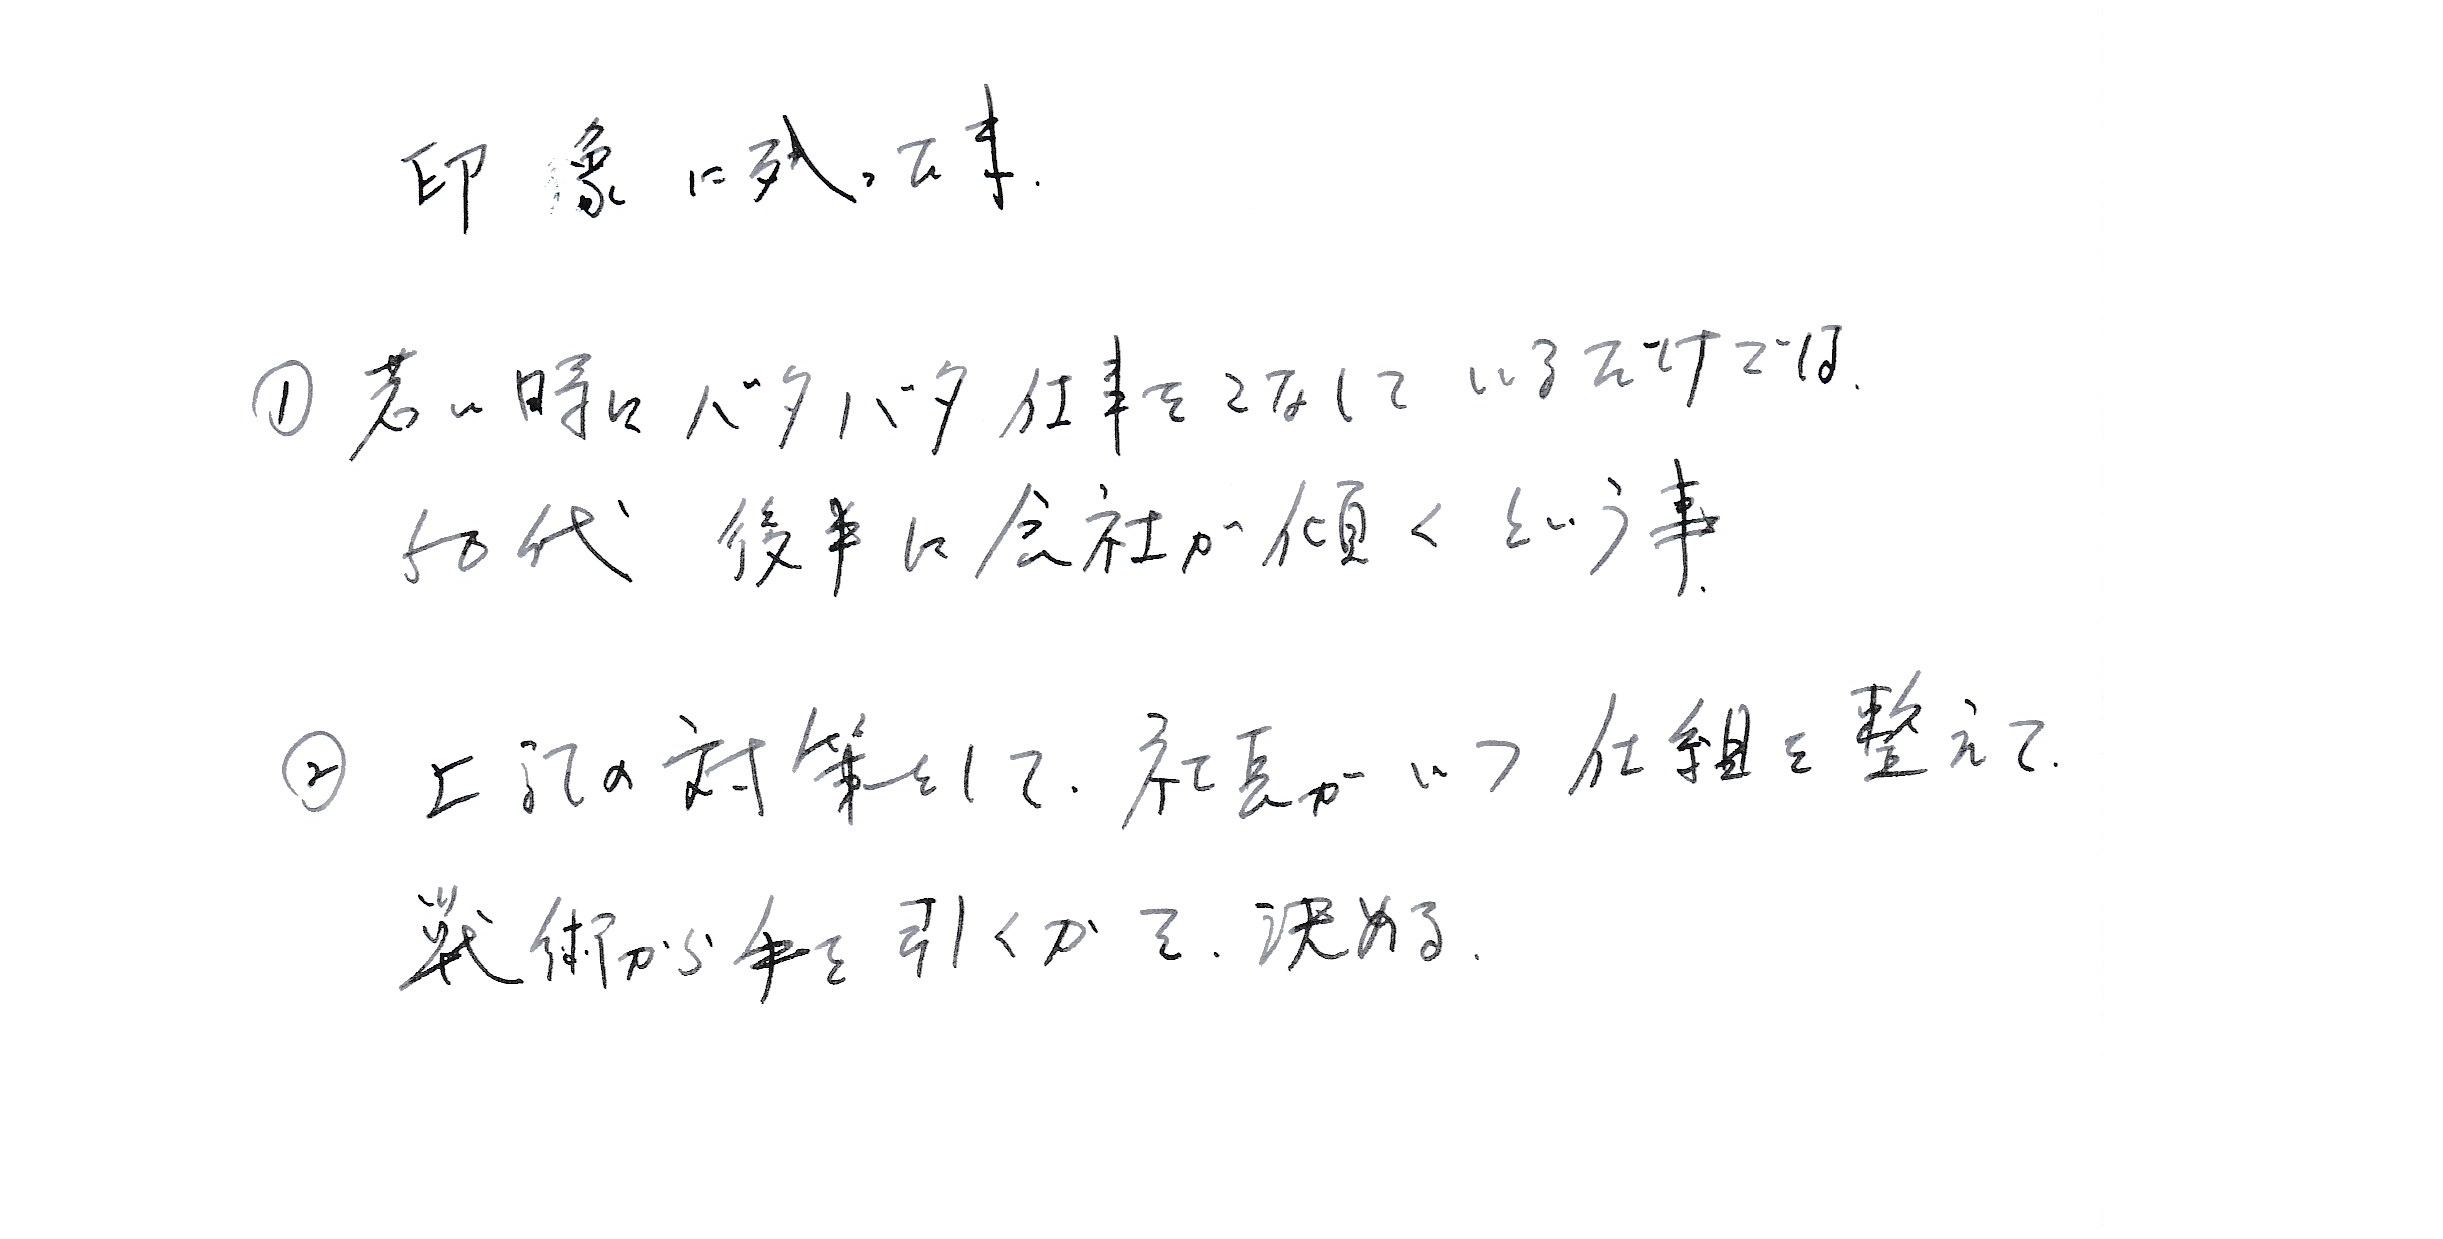 印象に残った事.
① 若い時にバタバタ仕事をこなしているだけでは.
50代 後半に会社が傾くという事.
② 上記の対策として. 社長がいつ仕組を整えて.
戦術から手を引くかを. 決める.